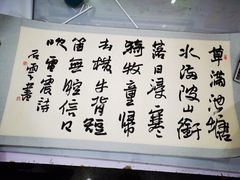 草满池塘
水满陂山衔
落日浸寒
漪牧童归
去横牛背短
笛无腔信口
吹雷震诗
石云书